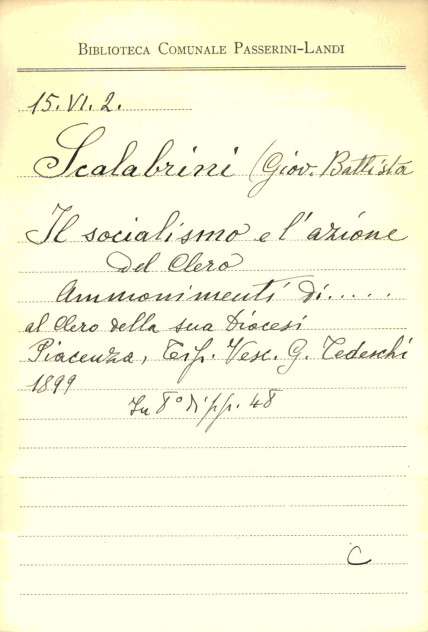 BIBLIOTECA COMUNALE PASSERINI-LANDI
15.VI.2.
Scalabrini (Giov. Battista
Il socialismo e l'azione
del Clero
Ammonimenti di.....
al Clero della sua Diocesi
Piacenza, Tip. Vesc. G. Tedeschi
1899
In 8° di pp. 48
C